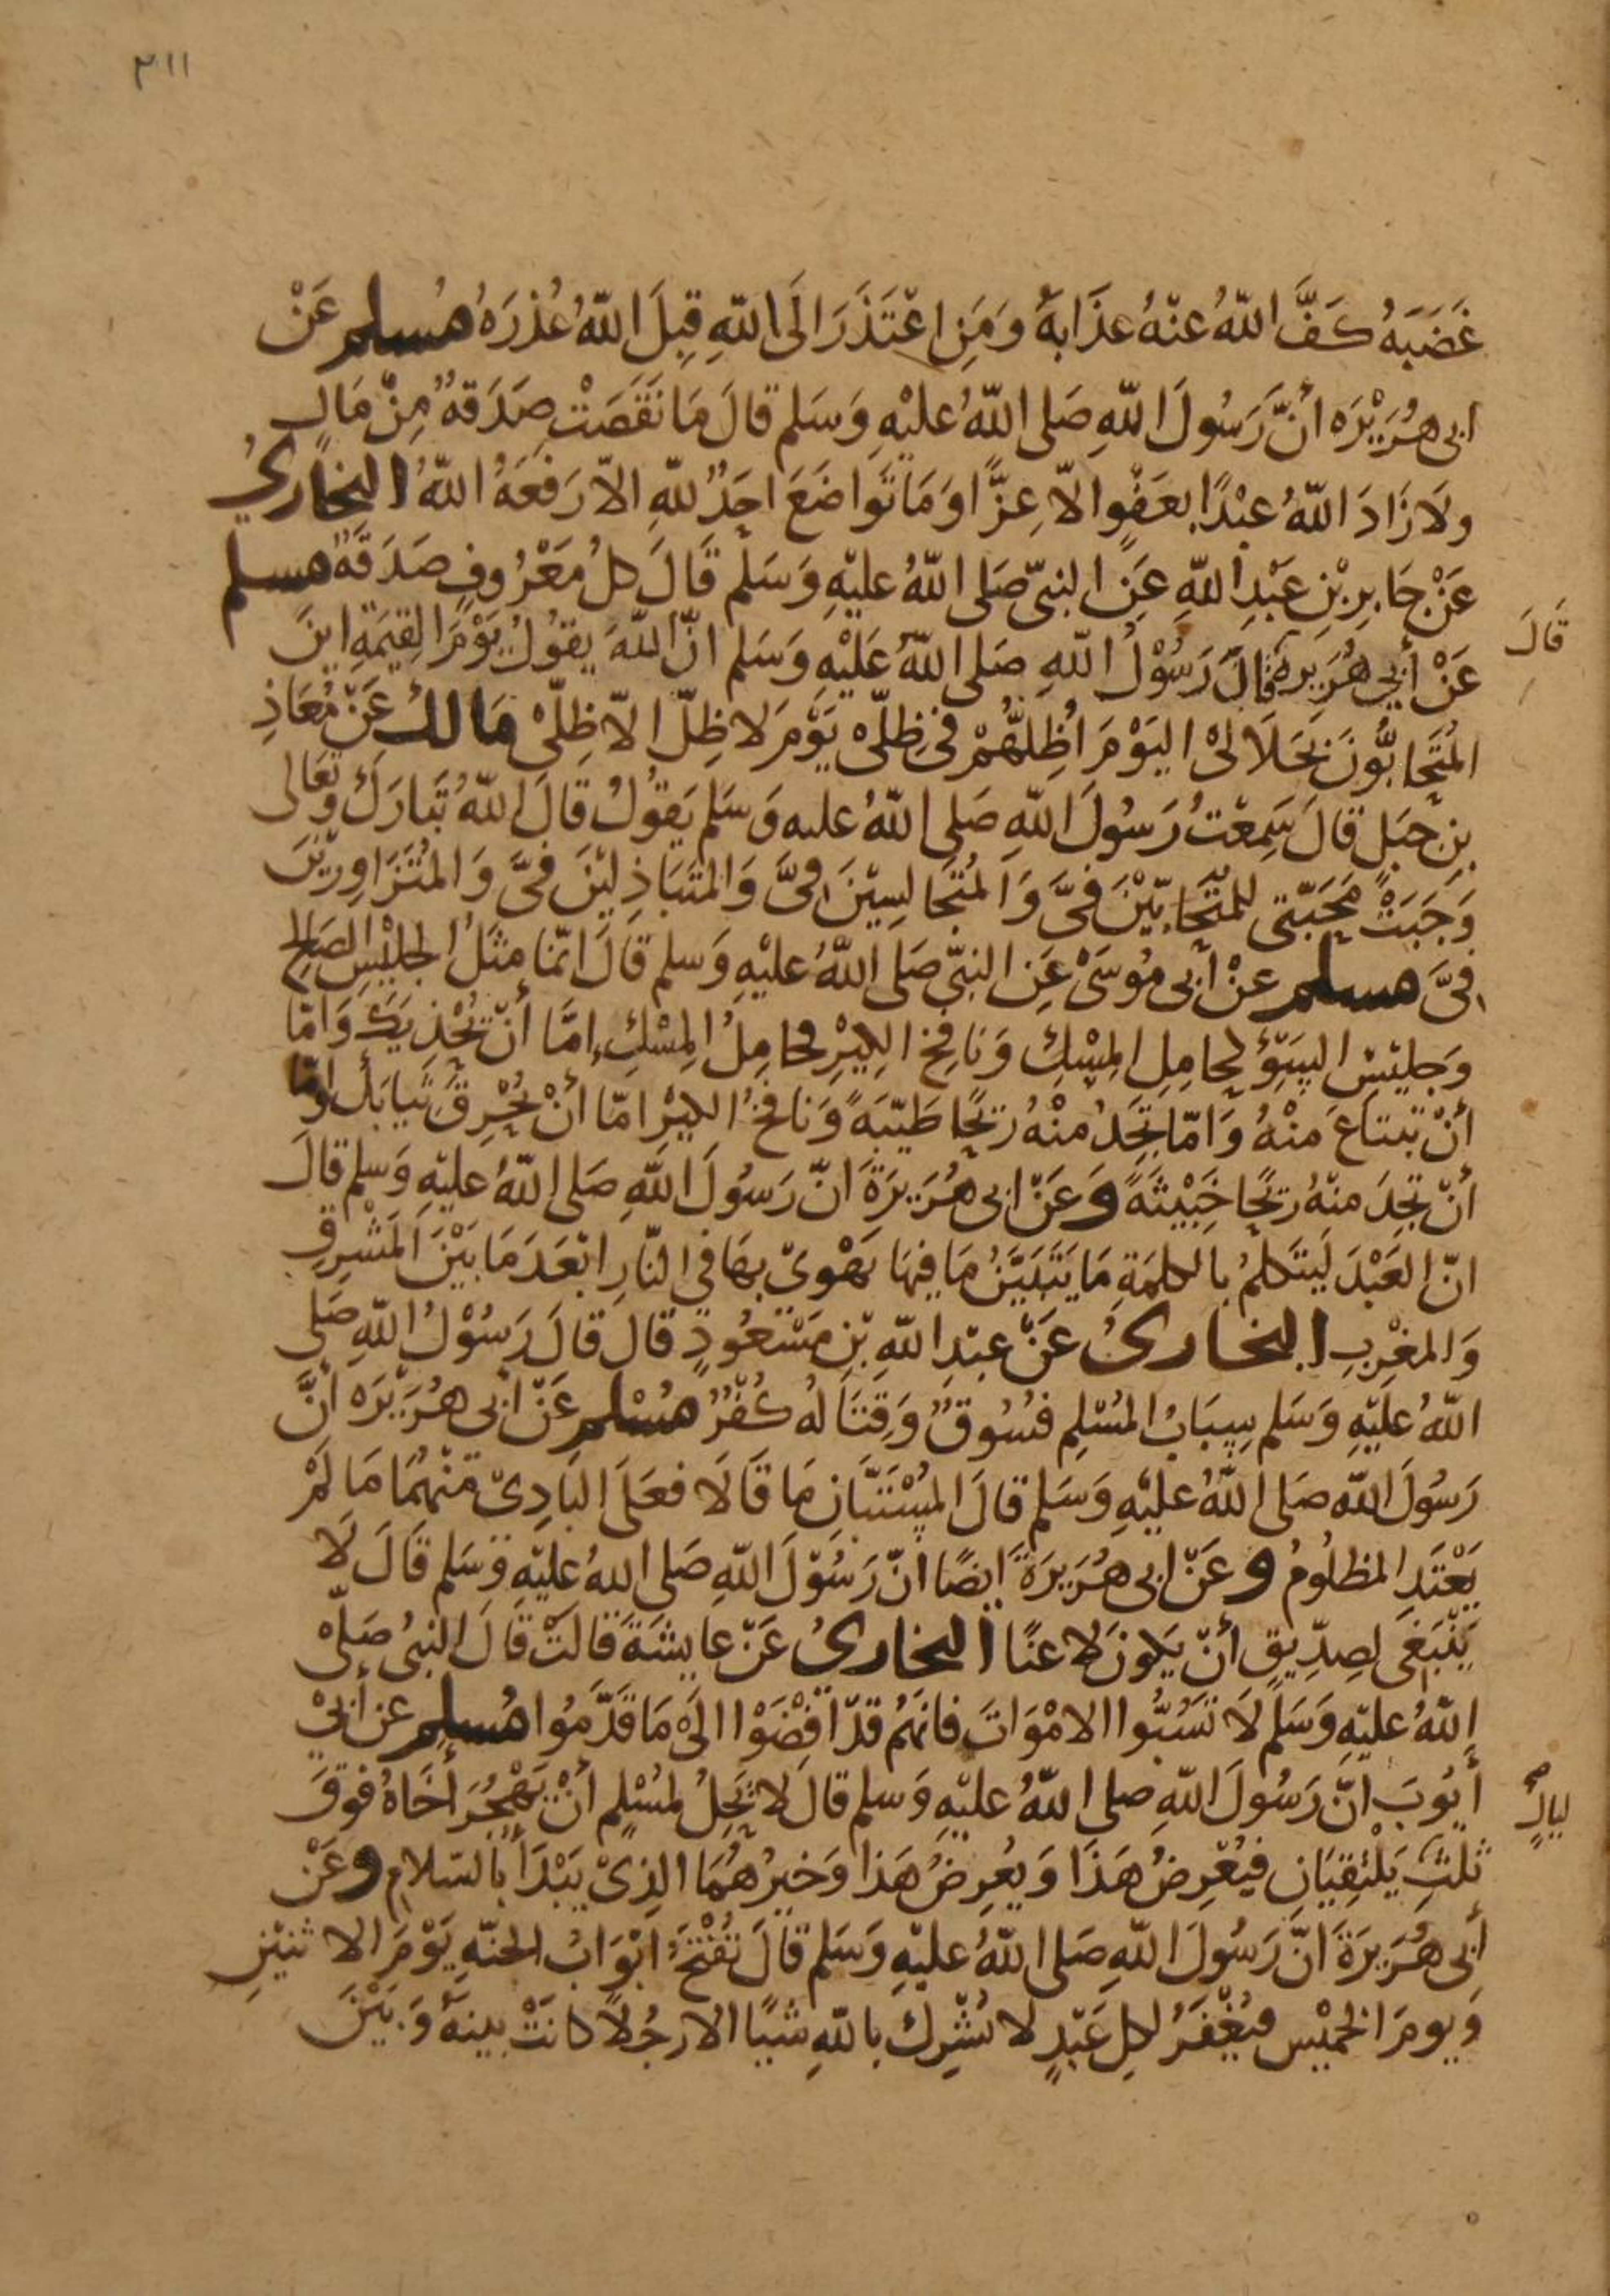 ٣١١
غَضَبَهُ كَفَّ اللّٰهُ عَنْهُ عَذَابَهُ وَمَنِ اعْتَذَرَ الَى اللّٰهِ قَبِلَ اللّٰهُ عُذْرَهُ مُسلم عَنْ
ابى هُرَيْرَه أنَّ رَسُولَ اللّٰهِ صَلى اللّٰهُ عليْهِ وَسَلم قالَ مَا نَقَصَتْ صَدَقةٌ مِنْ مَالٍ
ولَا زَادَ اللّٰهُ عبْدًا بعَفْوٍ الّا عِزًّا وَمَا تَوَاضَعَ احَدٌ للّٰهِ الّا رَفعَهُ اللّٰهُ البخَاريُ
عَنْ جَابِرِ بْنِ عَبْدِ اللّٰهِ عَنِ النبىّ صَلى اللّٰهُ عليْهِ وَسَلم قَالَ كلُ مَعْرُوفٍ صَدَقَةٌ مسلم
عَنْ أبِي هُرَيرة قالَ رَسُوْلُ اللّٰهِ صَلى اللّٰهُ عَلَيْهِ وَسَلم انّ اللّٰهَ يقوُلُ يَوْمَ القِيمَةِ اينَ
قَالَ
المُتَحَابُّونَ بجَلَالىْ اليَوْمَ اُظِلُّهُمْ فى ظِلّىْ يَوْمَ لا ظِلّ الّا ظِلّىْ مَالكُ عَنْ مُعَاذِ
بنِ جبَلٍ قالَ سَمِعْتُ رَسُولَ اللّٰهِ صَلى اللّٰهُ عليه وَسَلم يَقوُلُ قالَ اللّٰهُ تَبَارَكَ وَتَعَالى
وَجَبَتْ مَحَبّتى للمتَحَابّيْنَ فىَّ وَالمُتَجَالسِيْنَ فىَّ وَالمُتَبَاذِليْنَ فىَّ وَالمُتَزَاوِرِيْنَ
فىَّ مسلم عنْ أبى مُوسَىْ عَنِ النبىّ صَلى اللّٰهُ عليْهِ وَسلم قَالَ انّمَا مثَلُ الجليْسِ الصَالحِ
وَجليْسِ السَّوْءِ كحامِلِ المِسْكِ وَنَافِخِ الكِيْرِ فحامِلُ المِسْكِ امَّا أنْ يُحْذِيَكَ وَامّا
أنْ تبتاعَ منْهُ وَامّا تجَدُ منْهُ ريْحًا طَيّبَةً وَنَافخُ الكيْرِ امّا أنْ يُحْرِقَ ثيابَكَ وَامّا
أنْ تجِدَ منْهُ ريْحًا خَبِيْثَةً وَعَنْ ابى هُرَيرَةَ انّ رَسُولَ اللّٰهِ صَلى اللّٰهُ عليْهِ وَسلم قالَ
انّ العَبْدَ لَيتَكلمُ بالكلمَةِ مَا يَتَبَيّنُ مَا فِيهَا يَهْوِىْ بهَا فى النّارِ ابْعَدَ مَا بَيْنَ المَشْرِقِ
وَالمغْرِبِ البخارىُ عَنْ عبْدِ اللّٰهِ بْنِ مَسْعُودٍ قالَ قالَ رَسُوْلُ اللّٰهِ صَلى
اللّٰهُ عليْهِ وَسَلم سِبَابُ المُسْلِمِ فسُوقٌ وَقِتَالُهُ كُفْرٌ مُسْلم عَنْ أبى هُرَيْرَه أنَّ
رَسُولَ اللّٰه صَلى اللّٰهُ عليْهِ وَسَلم قالَ المُسْتَبّانِ مَا قَالَا فعَلَى البَادِىْ منْهُمَا مَا لمْ
يَعْتَدِ المظلُومُ وعَنْ ابى هُرَيرَةَ ايضًا انّ رَسُوْلَ اللّٰهِ صَلى اللّٰهُ عليْهِ وَسَلم قَالَ لَا
يَنْبَغى لصِدّيقٍ أنْ يَكونَ لا عنًا البخاريُ عَنْ عايشَةَ قالَتْ قَالَ النبىُ صَلّى
اللّٰهُ عليْهِ وَسَلم لَا تَسُبُّوا الامْوَاتَ فانّهُم قدْ افْضَوْا الَىْ مَا قَدَّمُوا مُسلم عن أبىْ
أيّوبَ انّ رَسُولَ اللّٰهِ صلى اللّٰهُ عليْهِ وَسلم قالَ لا يَحِلُ لمُسْلِمٍ أنْ يَهْجُرَ أخَاهُ فوقَ
ليالٍ صح
ثلثِ يَلْتقِيَانِ فيُعْرِضُ هَذَا وَيُعرِضُ هَذا وَخيرُهُمَا الذِىْ يَبْدَأُ بالسّلامِ وعَنْ
أبى هُرَيرَةَ انّ رَسُولَ اللّٰهِ صَلى اللّٰهُ عليْهِ وَسَلم قالَ تُفْتَحُ ابْوَابُ الجنّةِ يَوْمَ الاثنيْنِ
وَيومَ الخميْسِ فيُغْفَرُ لكلِ عَبْدٍ لا يُشْرِكُ باللّٰهِ شيًا الا رجُلًا كانَتْ بينهُ وَبيْنَ